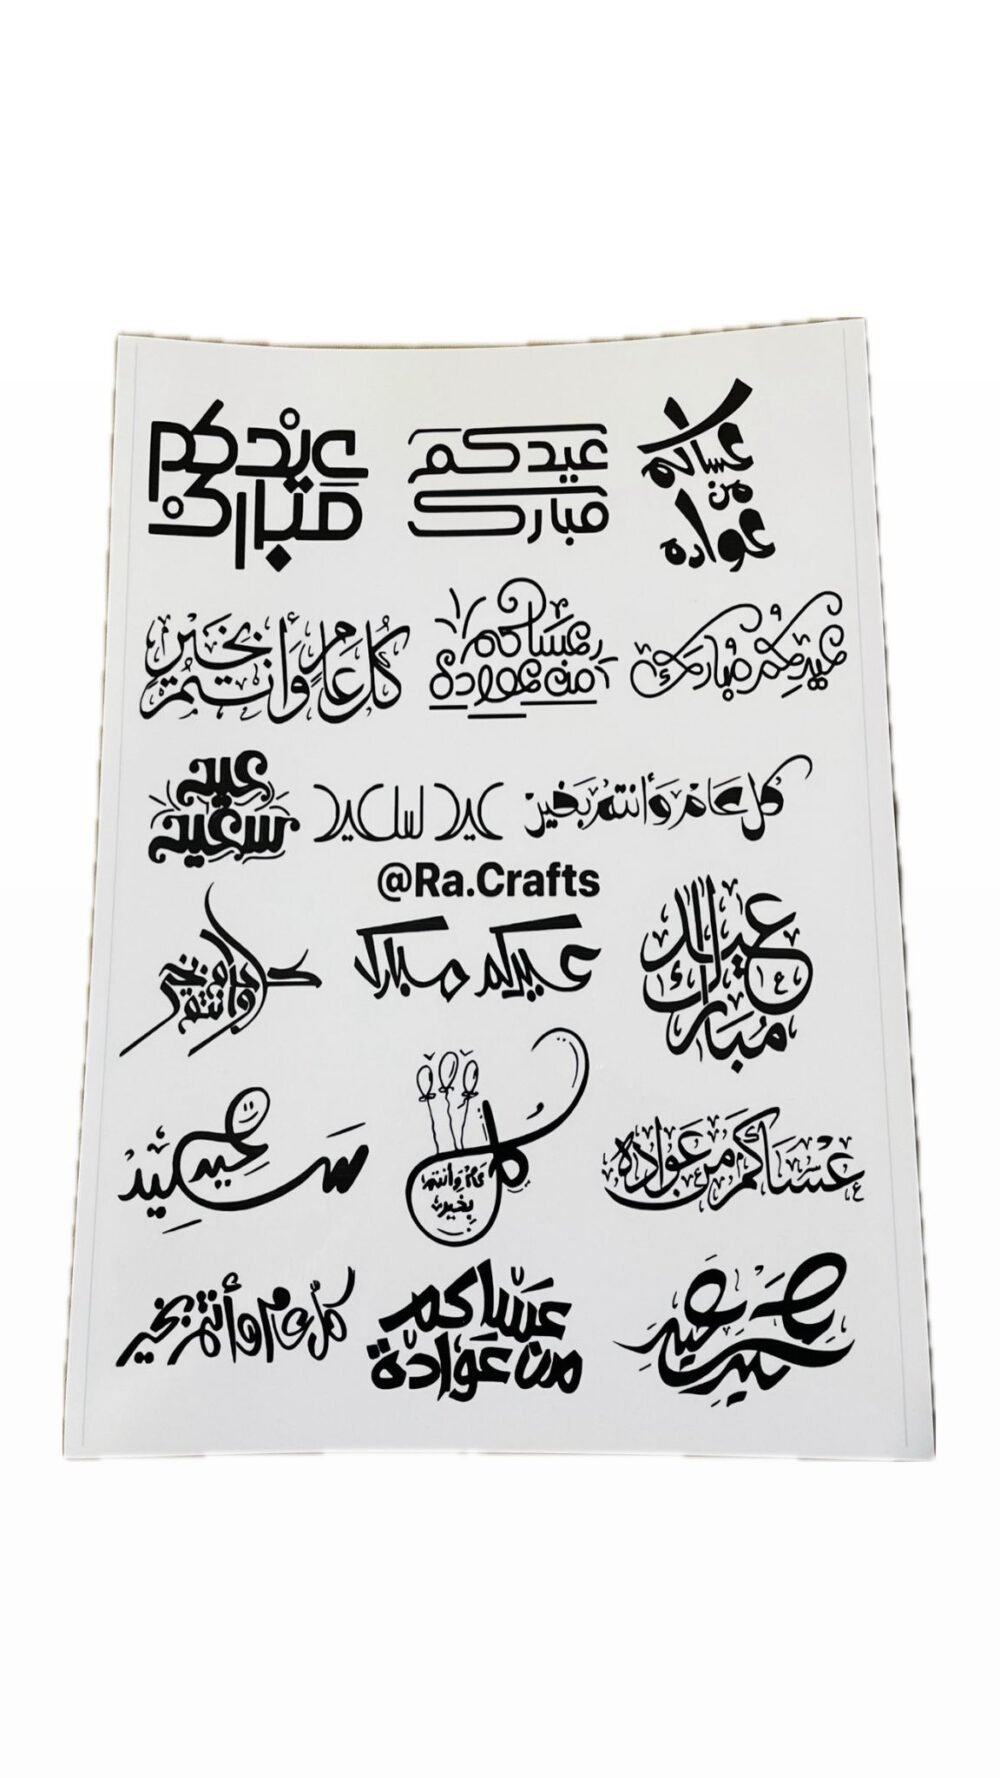 عيدكم
مبارك
عيدكم
مبارك
عساكم
من
عواده
كُل عَام وَأَنتُم
بخَيْر
عساكم
من عواده
عيدكم مبارك
عيد
سعيد
عيد سعيد
كل عَام وَأنتم بَخير
@Ra.Crafts
كل عام وانتم بخير
عيدكم مبارك
عيدك
مُبارك
عيد سعيد
كُل
عام وانتم
بخير
عَسَاكُم مِن عَوَادَه
كل عام وأنتم بخير
عَسَاكم
من عَوَادَة
عيد سعيد